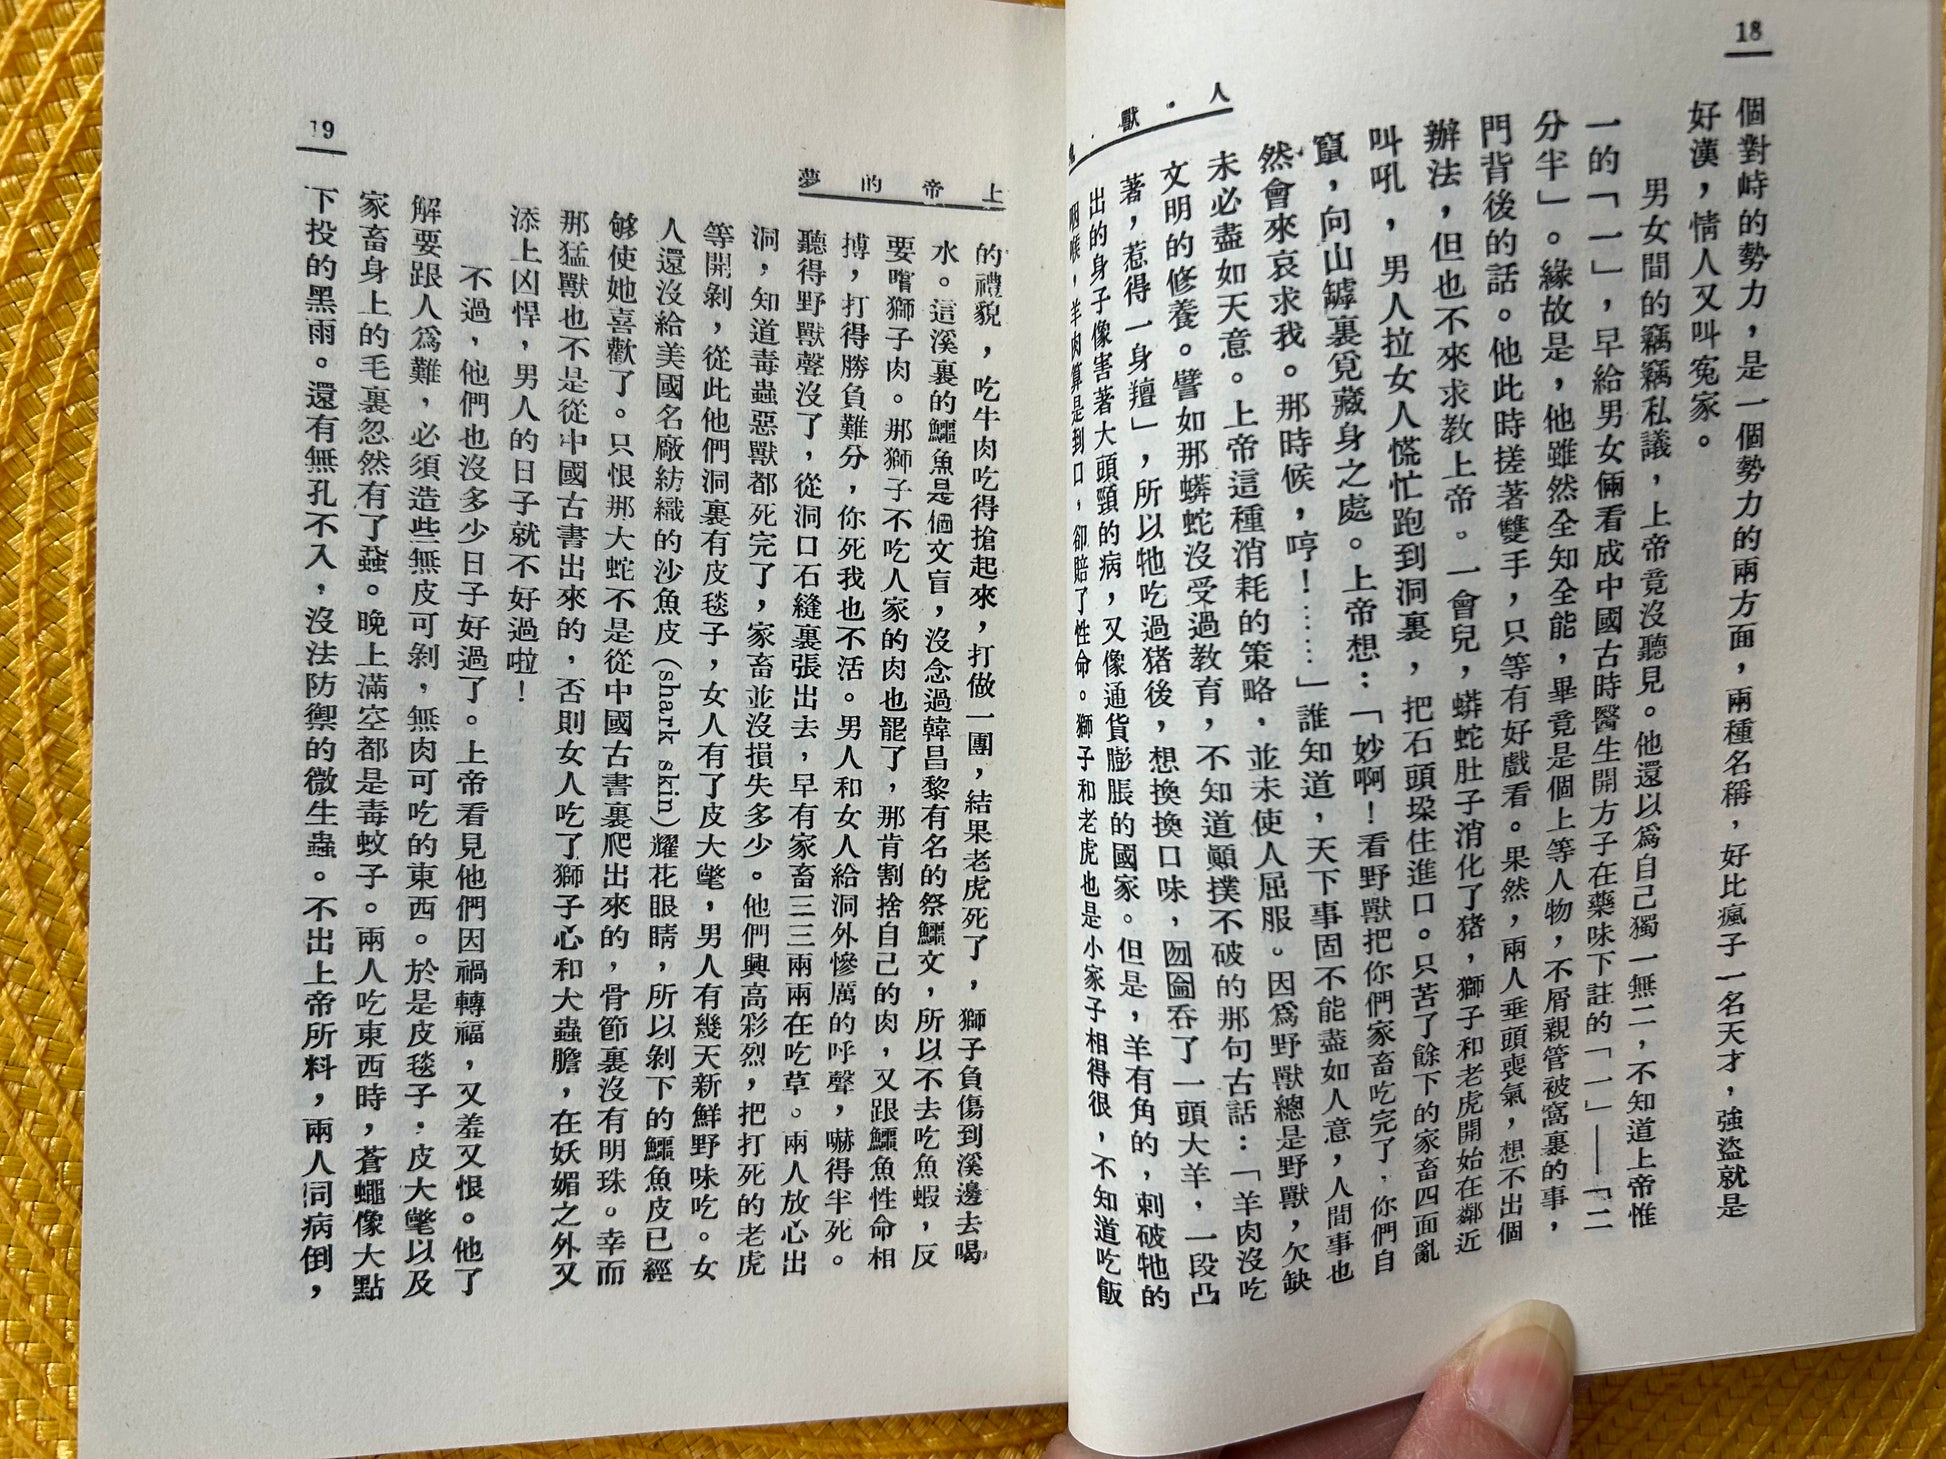 18
人．獸．鬼
個對峙的勢力，是一個勢力的兩方面，兩種名稱，好比瘋子一名天才，強盜就是
好漢，情人又叫寃家。
男女間的竊竊私議，上帝竟沒聽見。他還以爲自己獨一無二，不知道上帝惟
一的「一」，早給男女倆看成中國古時醫生開方子在藥味下註的「一」——「二
分半」。緣故是，他雖然全知全能，畢竟是個上等人物，不屑親管被窩裏的事，
門背後的話。他此時搓著雙手，只等有好戲看。果然，兩人垂頭喪氣，想不出個
辦法，但也不來求教上帝。一會兒，蟒蛇肚子消化了猪，獅子和老虎開始在鄰近
叫吼，男人拉女人慌忙跑到洞裏，把石頭垛住進口。只苦了餘下的家畜四面亂
竄，向山罅裏覓藏身之處。上帝想：「妙啊！看野獸把你們家畜吃完了，你們自
然會來哀求我。那時候，哼！……」誰知道，天下事固不能盡如人意，人間事也
未必盡如天意。上帝這種消耗的策略，並未使人屈服。因爲野獸總是野獸，欠缺
文明的修養。譬如那蟒蛇沒受過教育，不知道顚撲不破的那句古話：「羊肉沒吃
著，惹得一身羶」，所以牠吃過猪後，想換換口味，囫圇吞了一頭大羊，一段凸
出的身子像害著大頭頸的病，又像通貨膨脹的國家。但是，羊有角的，刺破牠的
咽喉，羊肉算是到口，卻賠了性命。獅子和老虎也是小家子相得很，不知道吃飯
上帝的夢
19
的禮貌，吃牛肉吃得搶起來，打做一團，結果老虎死了，獅子負傷到溪邊去喝
水。這溪裏的鱷魚是個文盲，沒念過韓昌黎有名的祭鱷文，所以不去吃魚蝦，反
要嚐獅子肉。那獅子不吃人家的肉也罷了，那肯割捨自己的肉，又跟鱷魚性命相
搏，打得勝負難分，你死我也不活。男人和女人給洞外慘厲的呼聲，嚇得半死。
聽得野獸聲沒了，從洞口石縫裏張出去，早有家畜三三兩兩在吃草。兩人放心出
洞，知道毒蟲惡獸都死完了，家畜並沒損失多少。他們興高彩烈，把打死的老虎
等開剝，從此他們洞裏有皮毯子，女人有了皮大氅，男人有幾天新鮮野味吃。女
人還沒給美國名廠紡織的沙魚皮(shark skin)耀花眼睛，所以剝下的鱷魚皮已經
够使她喜歡了。只恨那大蛇不是從中國古書裏爬出來的，骨節裏沒有明珠。幸而
那猛獸也不是從中國古書出來的，否則女人吃了獅子心和大蟲膽，在妖媚之外又
添上凶悍，男人的日子就不好過啦！
不過，他們也沒多少日子好過了。上帝看見他們因禍轉福，又羞又恨。他了
解要跟人爲難，必須造些無皮可剝，無肉可吃的東西。於是皮毯子．皮大氅以及
家畜身上的毛裏忽然有了蝨。晚上滿空都是毒蚊子。兩人吃東西時，蒼蠅像大點
下投的黑雨。還有無孔不入，沒法防禦的微生蟲。不出上帝所料，兩人同病倒，